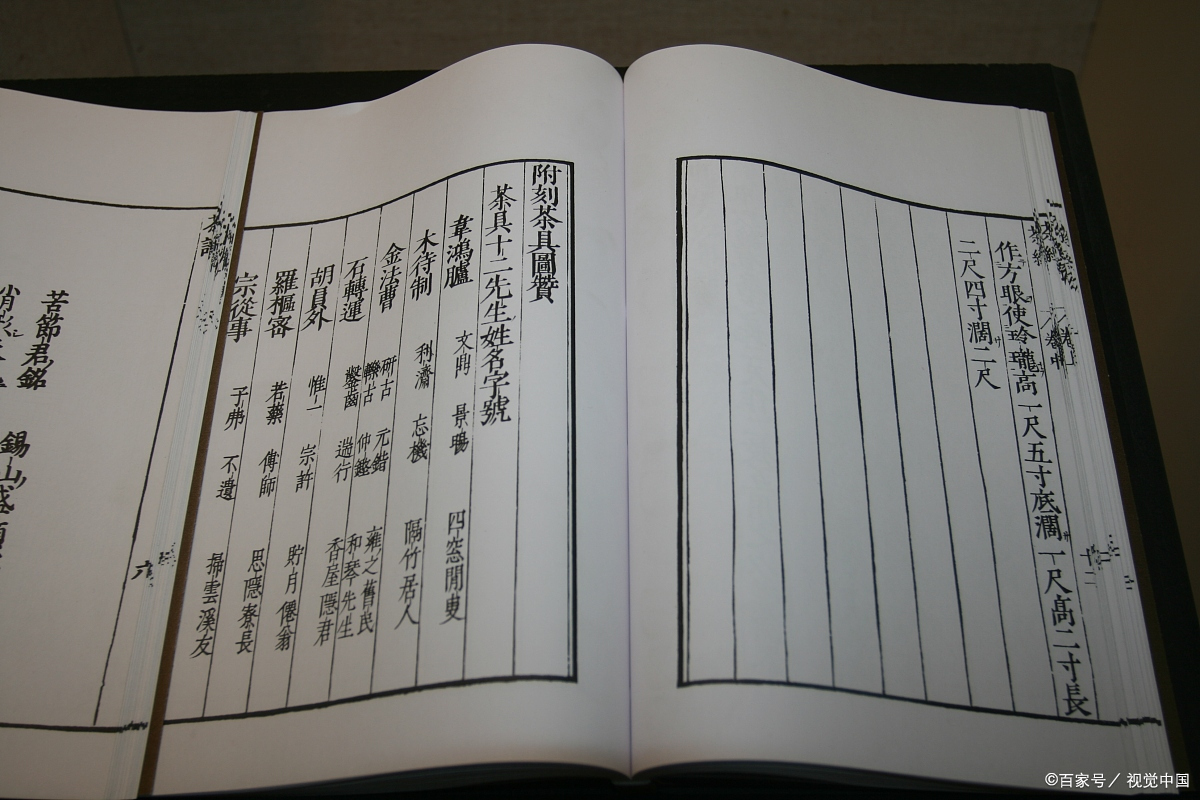 作方眼使玲瓏高一尺五寸底濶一尺高二寸長
二尺四寸濶二尺
十二
附刻茶具圖贊
茶具十二先生姓名字號
韋鴻臚 文鼎 景暘 四窓閒叟
木待制 利濟 忘機 隔竹居人
金法曹 研古 元鍇 雍之舊民
轢古 仲鏗 和琴先生
石轉運 鑿齒 遄行 香屋隱君
胡員外 惟一 宗許 貯月僊翁
羅樞密 若藥 傳師 思隱寮長
宗從事 子弗 不遺 掃雲溪友
茶譜
六
苦節君銘
錫山盛
©百家号／视觉中国